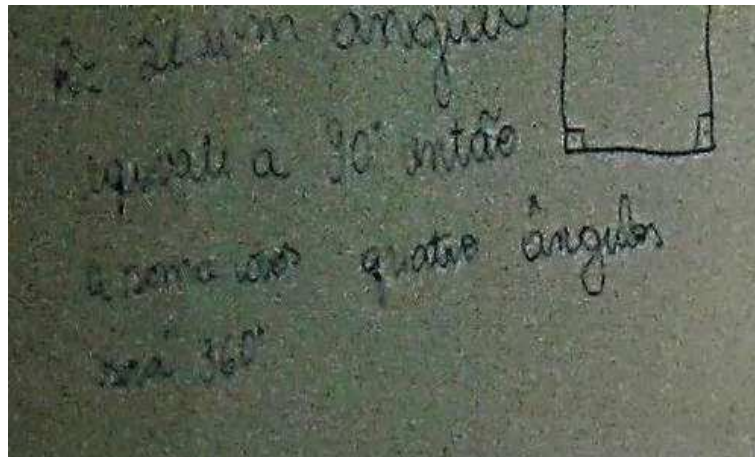 R: Se um ângulo
equivale a 90° então
a soma dos quatro ângulos
será 360°